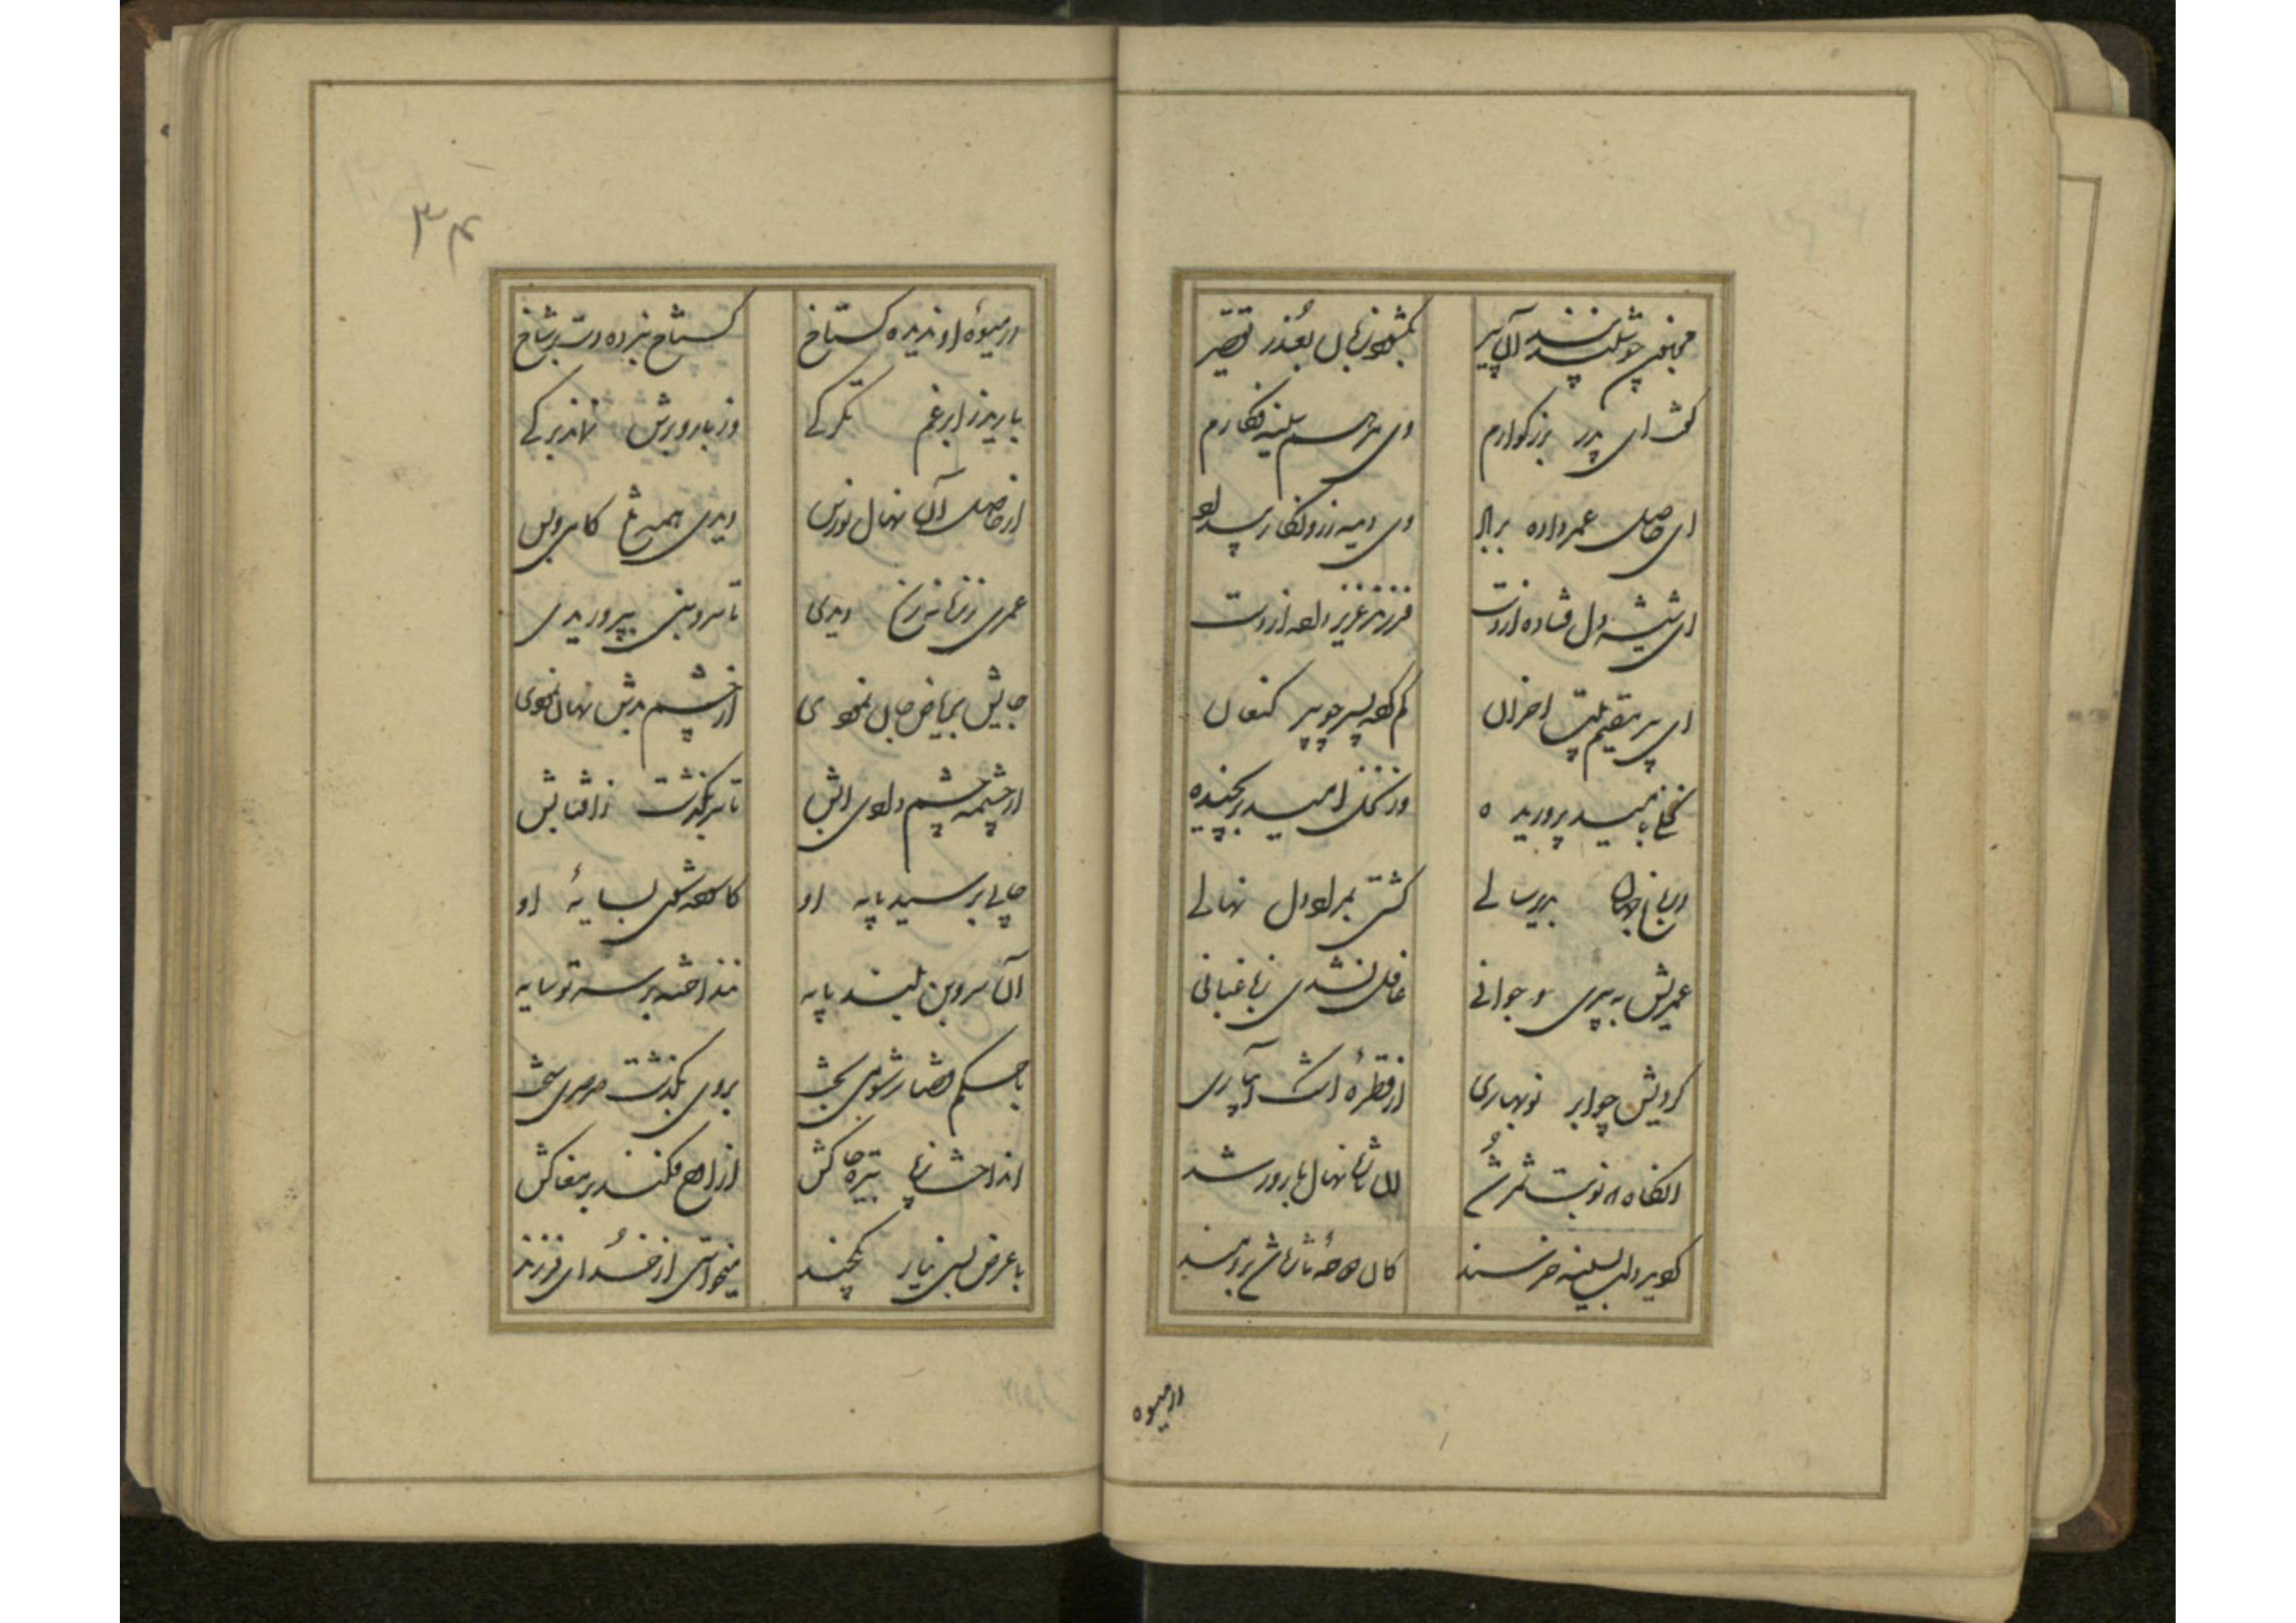 مجنون چو شنید پند آن پیر
بگشود زبان بعذر تقصیر
گفت ای پدر بزرگوارم
وی مرهم سینه فکارم
ای حاصل عمر داده بر باد
ای شیشه دل فتاده از دست
فرزند عزیز داده از دست
ای پیر مقیم بیت احزان
گم کرده پسر چو پیر کنعان
نخلی بامید پروریده
وز نخل امید بر نچیده
در باغ جهان بدیر سالی
کشتی بمراد دل نهالی
عمریش به پیری و جوانی
غافل نشدی ز باغبانی
کردیش چو ابر نوبهاری
از قطره اشک آبیاری
آنگاه که نوبت ثمر شد
آن تازه نهال بارور شد
کان تازه شاخ برومند
از میوه
۳۴
از میوهٔ او ندیده گستاخ
گستاخ نبرده دست بر شاخ
بارید ز ابر غم تگرگی
وز بار و برش نماند برگی
از حاصل آن نهال نورس
دیدی همه رنج کامی و بس
عمری ز زمانه رنج دیدی
تا سروبنی بپروریدی
جایش بریاض جان نمودی
از چشم بدش نهان نمودی
از چشمه چشم دادی آبش
تا سر بگذشت ز آفتابش
چون بر رسید پایه او
کاسوده شوی بسایهٔ او
آن سروبن بلند پایه
ننداخته بر سر تو سایه
با حکم قضا ز شومی بخت
بر وی بگذشت صرصری سخت
انداخت ز پا به تیره خاکش
از اوج فکند بر مغاکش
با عرض بسی نیاز یکچند
میخواستی از خدای فرزند